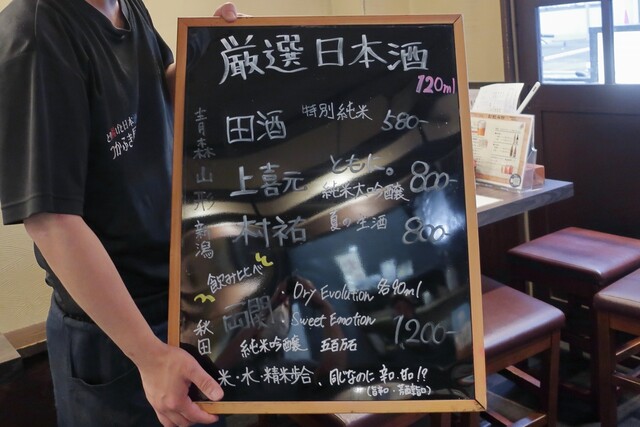 厳選日本酒
120ml
青森 田酒 特別純米 580-
山形 上喜元 とも水。 純米大吟醸 800-
新潟 村祐 夏の生酒 800-
飲み比べ
・Dry Evolution 各90ml
秋田 ・Sweet Emotion 1200-
純米吟醸 五百万石
米・水・精米歩合、同じなのに辛・甘!?